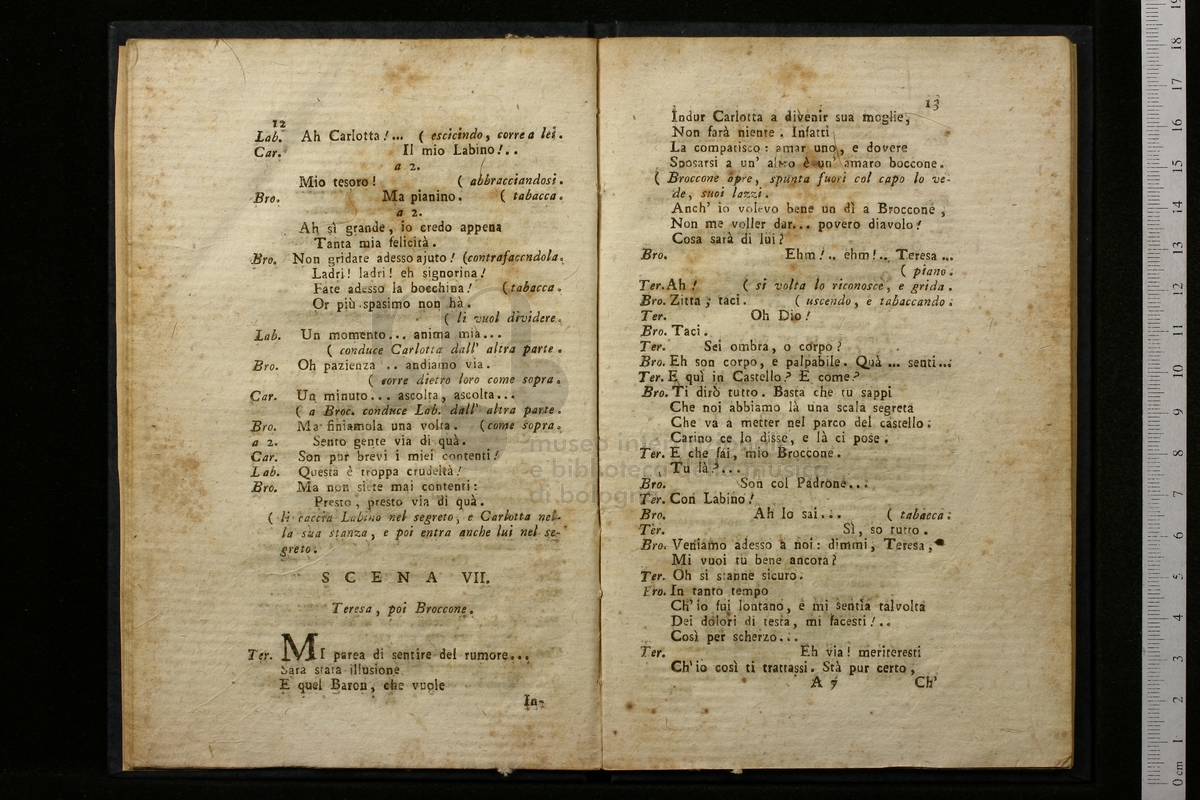 12
Lab. Ah Carlotta!... ( escicindo, corre a lei.
Car. Il mio Labino!..
a 2.
Mio tesoro! ( abbracciandosi.
Bro. Ma pianino. ( tabacca.
a 2.
Ah sì grande, io credo appena
Tanta mia felicità.
Bro. Non gridate adesso ajuto! (contrafaccndola.
Ladri! ladri! eh signorina!
Fate adesso la bocchina! (tabacca.
Or più spasimo non hà.
( li vuol dividere.
Lab. Un momento... anima mia...
( conduce Carlotta dall' altra parte.
Bro. Oh pazienza .. andiamo via.
( corre dietro loro come sopra.
Car. Un minuto... ascolta, ascolta...
( a Broc. conduce Lab. dall' altra parte.
Bro. Ma finiamola una volta. (come sopra.
a 2. Sento gente via di quà.
Car. Son pur brevi i miei contenti!
Lab. Questa è troppa crudeltà!
Bro. Ma non siete mai contenti:
Presto, presto via di quà.
( li caccia Labino nel segreto, e Carlotta nel-
la sua stanza, e poi entra anche lui nel se-
greto.
SCENA VII.
Teresa, poi Broccone.
Ter. MI parea di sentire del rumore...
Sara stata illusione
E quel Baron, che vuole
In-
13
Indur Carlotta a divenir sua moglie,
Non farà niente. Infatti
La compatisco: amar uno, e dovere
Sposarsi a un' altro è un' amaro boccone.
( Broccone apre, spunta fuori col capo lo ve-
de, suoi lazzi.
Anch' io volevo bene un dì a Broccone,
Non me voller dar... povero diavolo!
Cosa sarà di lui?
Bro. Ehm!.. ehm!.. Teresa ...
( piano.
Ter. Ah! ( si volta lo riconosce, e grida.
Bro. Zitta; taci. ( uscendo, e tabaccando.
Ter. Oh Dio!
Bro. Taci.
Ter. Sei ombra, o corpo?
Bro. Eh son corpo, e palpabile. Quà ... senti...
Ter. E quì in Castello? E come?
Bro. Ti dirò tutto. Basta che tu sappi
Che noi abbiamo là una scala segreta
Che va a metter nel parco del castello:
Carino ce lo disse, e là ci pose.
Ter. E che fai, mio Broccone.
Tu là?...
Bro. Son col Padrone...
Ter. Con Labino!
Bro. Ah lo sai... ( tabacca:
Ter. Sì, so tutto.
Bro. Veniamo adesso a noi: dimmi, Teresa,
Mi vuoi tu bene ancora?
Ter. Oh si stanne sicuro.
Bro. In tanto tempo
Ch' io fui lontano, e mi sentia talvolta
Dei dolori di testa, mi facesti!..
Così per scherzo...
Ter. Eh via! meriteresti
Ch' io così ti trattassi. Stà pur certo,
A 7 Ch'
museo internazionale
e biblioteca della musica
di bologna